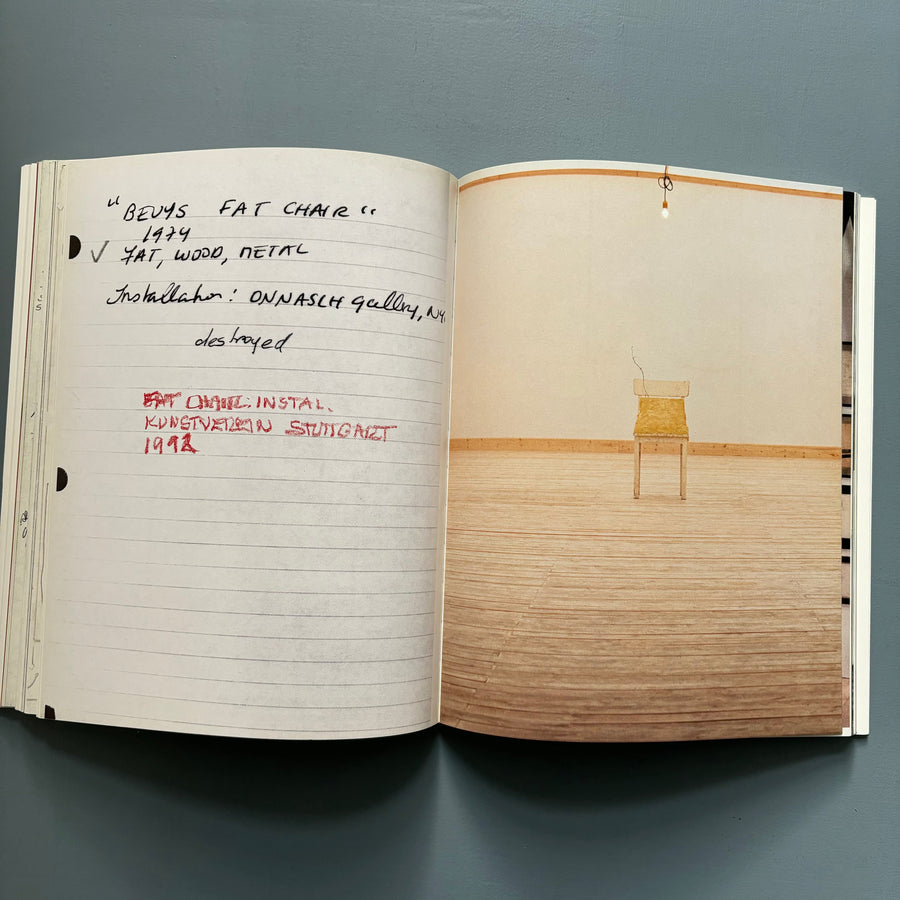 " BEUYS FAT CHAIR "
1974
✓ FAT, WOOD, METAL
Installation: ONNASCH gallery, NY.
destroyed
FAT CHAIR: INSTAL.
KUNSTVEREIN STUTTGART
1992